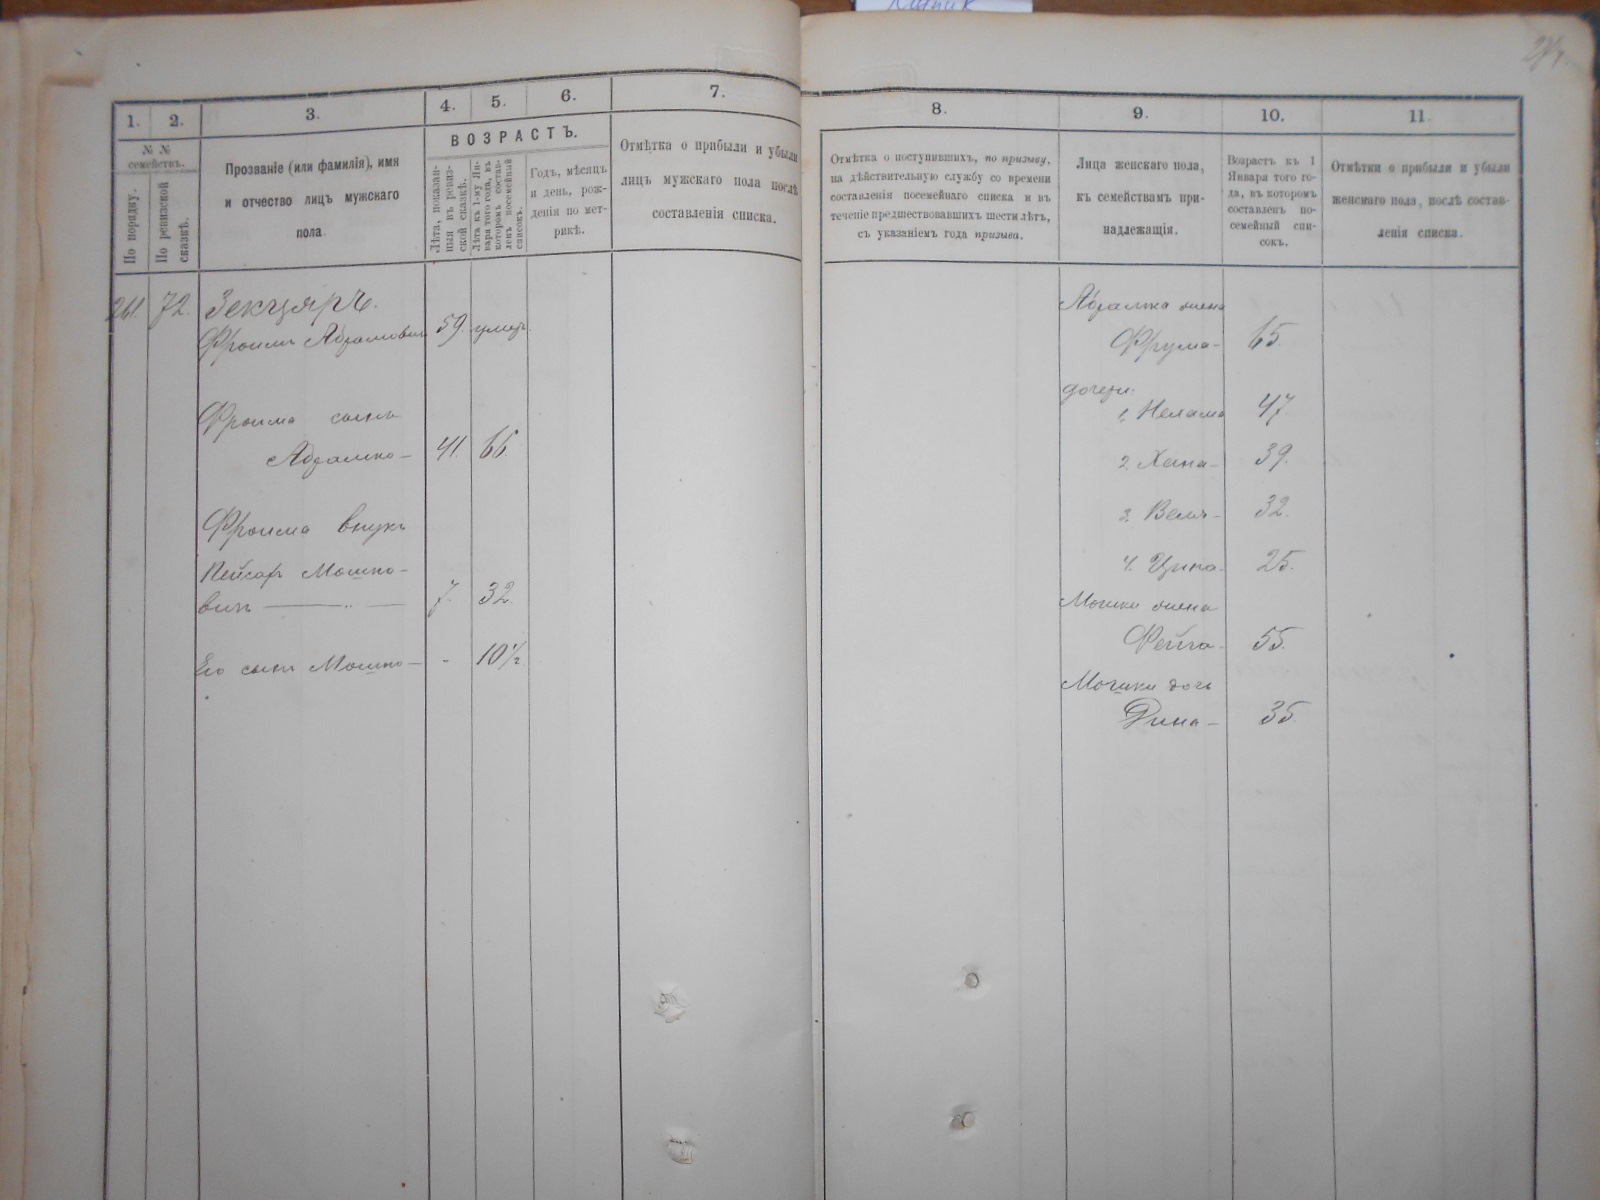 1.
2.
3.
4.
5.
6.
7.
№ №
семействъ.
По порядку.
По ревизской
сказкѣ.
Прозваніе (или фамилія), имя
и отчество лицъ мужскаго
пола.
ВОЗРАСТЪ.
Лѣта, показан-
ныя въ ревиз-
ской сказкѣ.
Лѣта къ 1-му Ян-
варя того года, въ
которомъ состав-
ленъ посемейный
списокъ.
Годъ, мѣсяцъ
и день, рож-
денія по мет-
рикѣ.
Отмѣтка о прибыли и убыли
лицъ мужскаго пола послѣ
составленія списка.
261. 72. Зекцяръ.
Фроимъ Абрамовичъ 59. умеръ.
Фроима сынъ
Абрамко 41. 66.
Фроима внукъ
Пейсахъ Мошко-
вичъ 7. 32.
Его сынъ Мошко - 10½
8.
9.
10.
11.
Отмѣтка о поступившихъ, по призыву,
на дѣйствительную службу со времени
составленія посемейнаго списка и въ
теченіе предшествовавшихъ шести лѣтъ,
съ указаніемъ года призыва.
Лица женскаго пола,
къ семействамъ при-
надлежащія.
Возрастъ къ 1
Января того го-
да, въ которомъ
составленъ по-
семейный спи-
сокъ.
Отмѣтки о прибыли и убыли
женскаго пола, послѣ состав-
ленія списка.
Абрамка жена
Фрума- 65.
дочери:
1. Нехама 47.
2. Хана- 39.
3. 32.
4. Ципа- 25.
Мошки жена
Фейга- 55.
Мошки дочь
Дина- 35